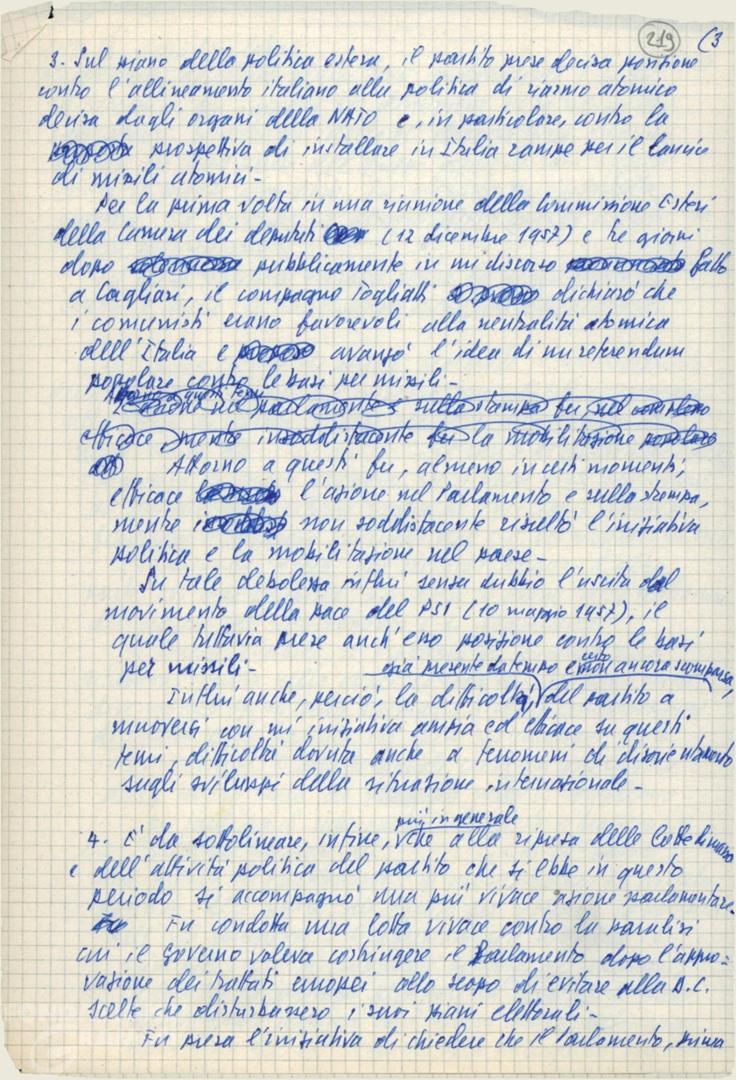 219 (3
3. Sul piano della politica estera, il partito prese decisa posizione
contro l'allineamento italiano alla politica di riarmo atomico
decisa dagli organi della NATO e, in particolare, contro la
prospettiva di installare in Italia rampe per il lancio
di missili atomici -
Per la prima volta in una riunione della Commissione Esteri
della Camera dei deputati (12 dicembre 1957) e tre giorni
dopo pubblicamente in un discorso fatto
a Cagliari, il compagno Togliatti dichiarò che
i comunisti erano favorevoli alla neutralità atomica
dell'Italia e avanzò l'idea di un referendum
popolare contro le basi per missili -
Attorno a questi temi
L'azione nel parlamento e sulla stampa fu nel complesso
efficace mentre insoddisfacente fu la mobilitazione popolare
Attorno a questi fu, almeno in certi momenti,
efficace l'azione nel Parlamento e sulla stampa,
mentre non soddisfacente risultò l'iniziativa
politica e la mobilitazione nel paese -
Su tale debolezza influì senza dubbio l'uscita dal
movimento della pace del PSI (10 maggio 1957), il
quale tuttavia prese anch'esso posizione contro le basi
per missili - già presente da tempo e certo non ancora scomparsa,
Influì anche, perciò, la difficoltà, del partito a
muoversi con un'iniziativa ampia ed efficace su questi
temi, difficoltà dovuta anche a fenomeni di disorientamento
sugli sviluppi della situazione internazionale -
più in generale
4. E' da sottolineare, infine, che alla ripresa delle lotte di massa
e dell'attività politica del partito che si ebbe in questo
periodo si accompagnò una più vivace azione parlamentare.
Fu condotta una lotta vivace contro la paralisi
cui il Governo voleva costringere il Parlamento dopo l'appro=
vazione dei trattati europei allo scopo di evitare alla D.C.
scelte che disturbassero i suoi piani elettorali -
Fu presa l'iniziativa di chiedere che il Parlamento, prima